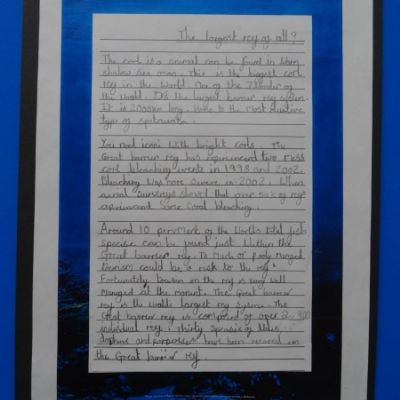 The largest rey of all?
The corl is a animal can be found in warm
shalow sea areas. This is the biggest corl
rey in the World. One of the 7 wonder of
the World. It's the largest barrier rey system
It is 2000km long. Home to the most
type of
You need iconic with bright corls. The
Great barrier rey has experienced two mass
corl bleaching events in 1998 and 2002.
bleaching was more severe in 2002. When
aerial surveys showed that over 50% of reys
experienced some coral bleaching.
Around 10 percent of the World's total fish
specise can be found just within the
Great barrier rey. To much or poorly manged
tourism could be a risk to the rey.
Fortunately tourism on the rey is very well
manged at the moment. The Great barrier
rey is the worlds largest rey system. The
Great barrier rey is composed of over 2,900
individual rey. Thirty species of Wales,
dolphins and porpoises have been recored in
the Great barrier rey.